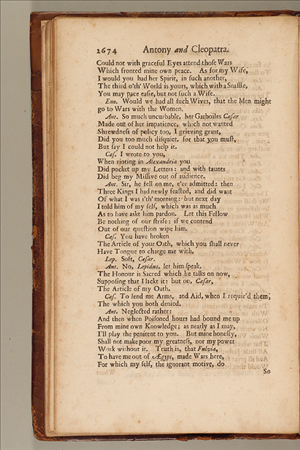 2674 Antony and Cleopatra.
Could not with graceful Eyes attend those Wars
Which fronted mine own peace. As for my Wife,
I would you had her Spirit, in such another,
The third o'th' World is yours, which with a Snaffle,
You may pace easie, but not such a Wife.
Eno. Would we had all such Wives, that the Men might
go to Wars with the Women.
Ant. So much uncurbable, her Garboiles Cæsar
Made out of her impatience, which not wanted
Shrewdness of policy too, I grieving grant,
Did you too much disquiet, for that you must,
But say I could not help it.
Cæs. I wrote to you,
When rioting in Alexandria you
Did pocket up my Letters: and with taunts
Did beg my Missive out of audience.
Ant. Sir, he fell on me, e'er admitted: then
Three Kings I had newly feasted, and did want
Of what I was i'th' morning: but next day
I told him of my self, which was as much
As to have askt him pardon. Let this Fellow
Be nothing of our strife: if we contend
Out of our question wipe him.
Cæs. You have broken
The Article of your Oath, which you shall never
Have Tongue to charge me with.
Lep. Soft, Cæsar.
Ant. No, Lepidus, let him speak,
The Honour is Sacred which he talks on now,
Supposing that I lackt it: but on, Cæsar,
The Article of my Oath.
Cæs. To lend me Arms, and Aid, when I requir'd them,
The which you both denied.
Ant. Neglected rather:
And then when Poisoned hours had bound me up
From mine own Knowledge; as nearly as I may,
I'll play the penitent to you. But mine honesty,
Shall not make poor my greatness, nor my power
Work without it. Truth is, that Fulvia,
To have me out of Ægypt, made Wars here,
For which my self, the ignorant motive, do
So